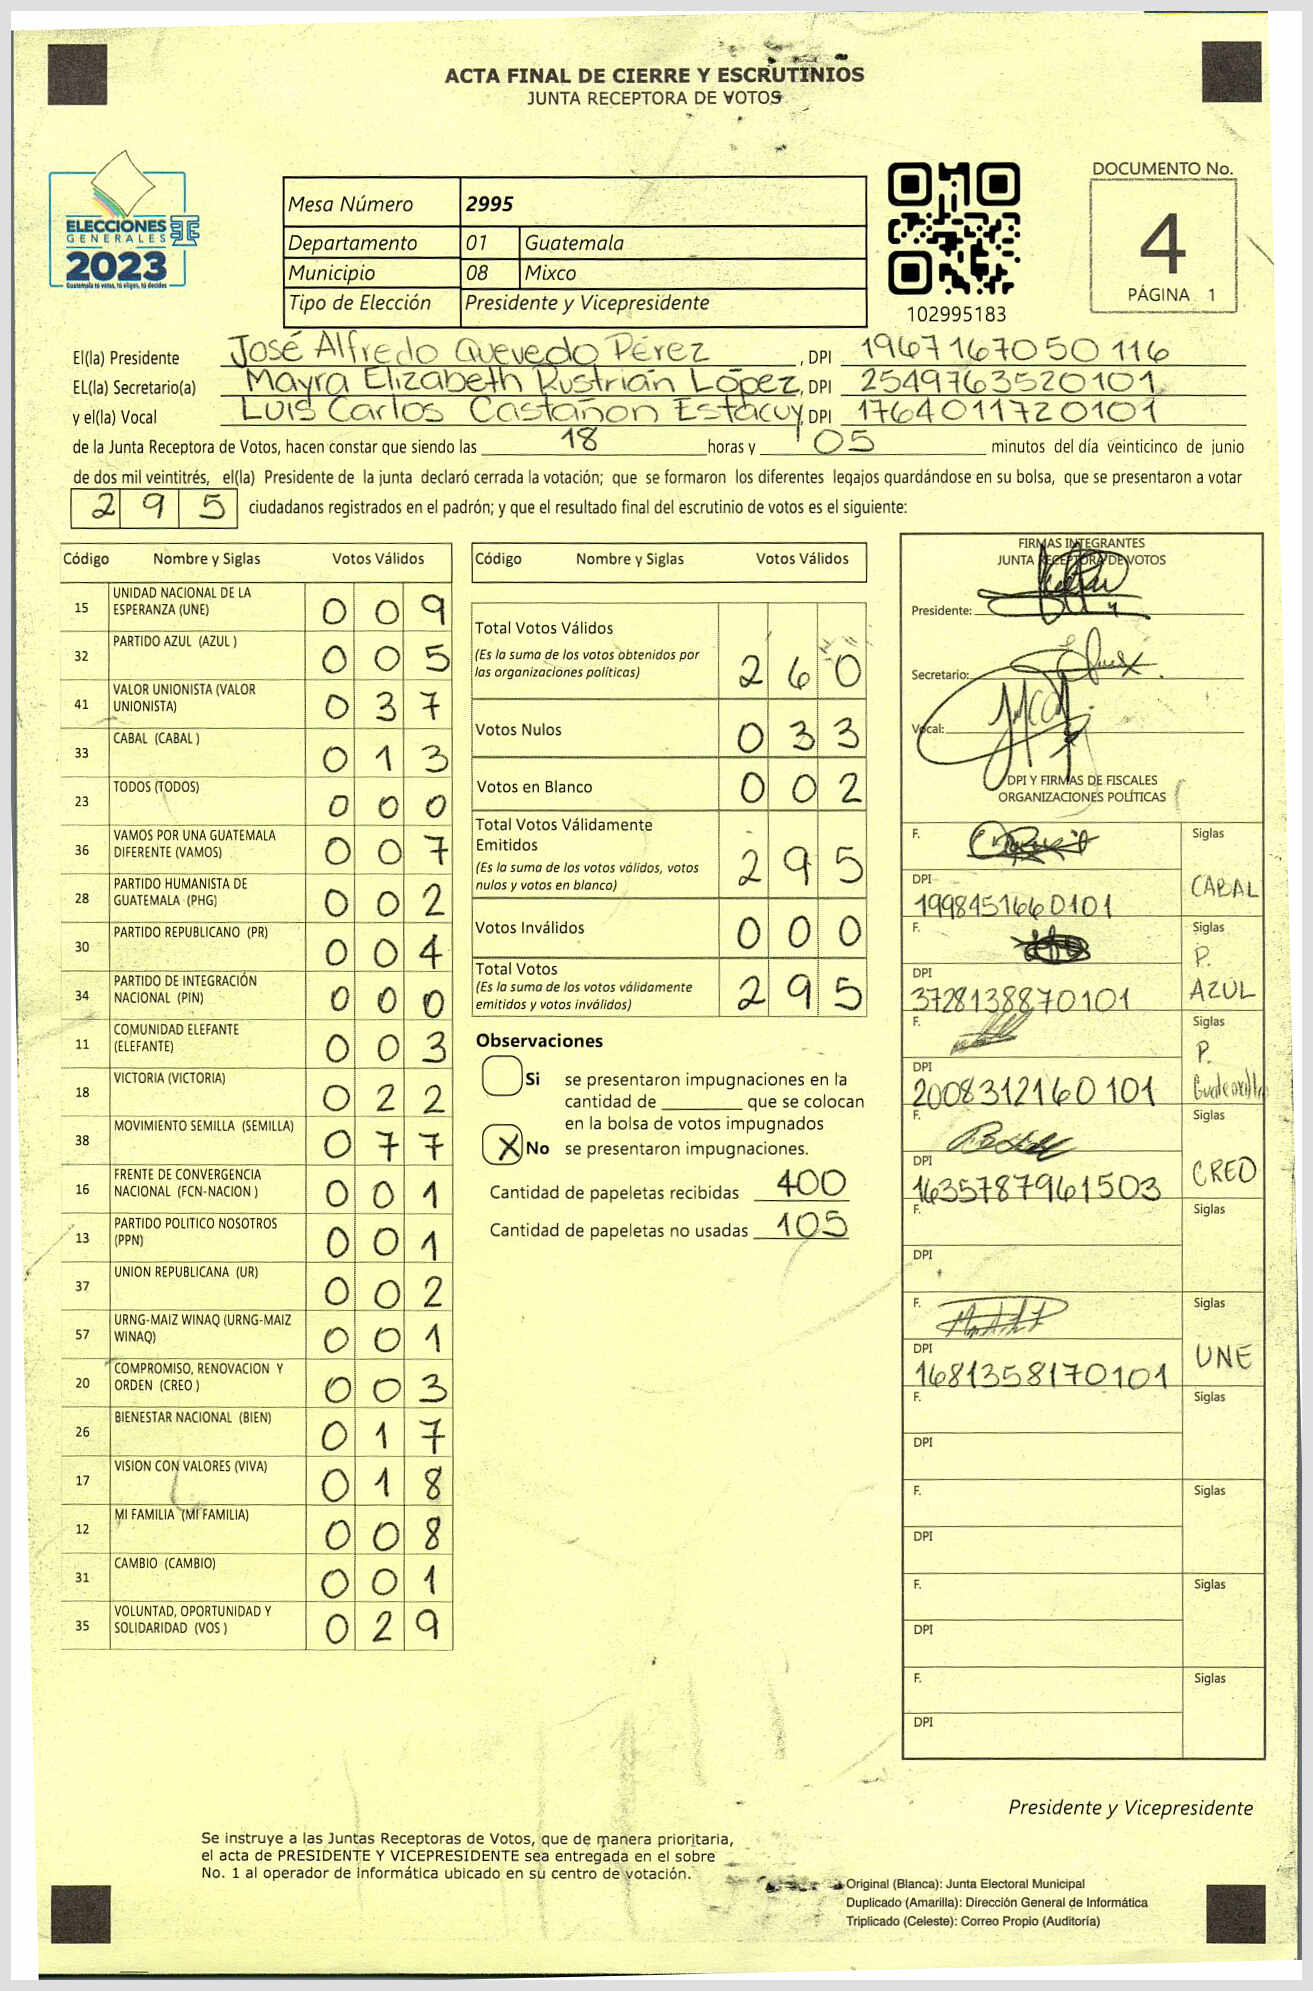 ACTA FINAL DE CIERRE Y ESCRUTINIOS
JUNTA RECEPTORA DE VOTOS
ELECCIONES
GENERALES
2023
Guatemala tú votas, tú eliges, tú decides
Mesa Número 2995
Departamento 01 Guatemala
Municipio 08 Mixco
Tipo de Elección Presidente y Vicepresidente
102995183
DOCUMENTO No.
4
PÁGINA 1
El(la) Presidente José Alfredo Quevedo Pérez, DPI 1967167050116
EL(la) Secretario(a) Mayra Elizabeth Rustrián López, DPI 2549763520101
y el(la) Vocal Luis Carlos Castañon Estacuy, DPI 1764011720101
de la Junta Receptora de Votos, hacen constar que siendo las 18 horas y 05 minutos del día veinticinco de junio
de dos mil veintitrés, el(la) Presidente de la junta declaró cerrada la votación; que se formaron los diferentes legajos guardándose en su bolsa, que se presentaron a votar
295 ciudadanos registrados en el padrón; y que el resultado final del escrutinio de votos es el siguiente:
Código Nombre y Siglas Votos Válidos
15 UNIDAD NACIONAL DE LA
ESPERANZA (UNE) 009
32 PARTIDO AZUL (AZUL ) 005
41 VALOR UNIONISTA (VALOR
UNIONISTA) 037
33 CABAL (CABAL ) 013
23 TODOS (TODOS) 000
36 VAMOS POR UNA GUATEMALA
DIFERENTE (VAMOS) 007
28 PARTIDO HUMANISTA DE
GUATEMALA (PHG) 002
30 PARTIDO REPUBLICANO (PR) 004
34 PARTIDO DE INTEGRACIÓN
NACIONAL (PIN) 000
11 COMUNIDAD ELEFANTE
(ELEFANTE) 003
18 VICTORIA (VICTORIA) 022
38 MOVIMIENTO SEMILLA (SEMILLA) 077
16 FRENTE DE CONVERGENCIA
NACIONAL (FCN-NACION ) 001
13 PARTIDO POLITICO NOSOTROS
(PPN) 001
37 UNION REPUBLICANA (UR) 002
57 URNG-MAIZ WINAQ (URNG-MAIZ
WINAQ) 001
20 COMPROMISO, RENOVACION Y
ORDEN (CREO ) 003
26 BIENESTAR NACIONAL (BIEN) 017
17 VISION CON VALORES (VIVA) 018
12 MI FAMILIA (MI FAMILIA) 008
31 CAMBIO (CAMBIO) 001
35 VOLUNTAD, OPORTUNIDAD Y
SOLIDARIDAD (VOS ) 029
Código Nombre y Siglas Votos Válidos
Total Votos Válidos
(Es la suma de los votos obtenidos por
las organizaciones políticas) 260
Votos Nulos 033
Votos en Blanco 002
Total Votos Válidamente
Emitidos
(Es la suma de los votos válidos, votos
nulos y votos en blanco) 295
Votos Inválidos 000
Total Votos
(Es la suma de los votos válidamente
emitidos y votos inválidos) 295
Observaciones
Si se presentaron impugnaciones en la
cantidad de ________ que se colocan
en la bolsa de votos impugnados
X No se presentaron impugnaciones.
Cantidad de papeletas recibidas 400
Cantidad de papeletas no usadas 105
FIRMAS INTEGRANTES
JUNTA RECEPTORA DE VOTOS
Presidente:
Secretario:
Vocal:
DPI Y FIRMAS DE FISCALES
ORGANIZACIONES POLÍTICAS
F. Siglas
DPI CABAL
1998451660101
F. Siglas
P.
DPI AZUL
3728138870101
F. Siglas
P.
DPI
2008312160101
F. Siglas
DPI CREO
1635787961503
F. Siglas
DPI
F. Siglas
DPI UNE
1681358170101
F. Siglas
DPI
F. Siglas
DPI
F. Siglas
DPI
F. Siglas
DPI
Presidente y Vicepresidente
Se instruye a las Juntas Receptoras de Votos, que de manera prioritaria,
el acta de PRESIDENTE Y VICEPRESIDENTE sea entregada en el sobre
No. 1 al operador de informática ubicado en su centro de votación.
Original (Blanca): Junta Electoral Municipal
Duplicado (Amarilla): Dirección General de Informática
Triplicado (Celeste): Correo Propio (Auditoría)